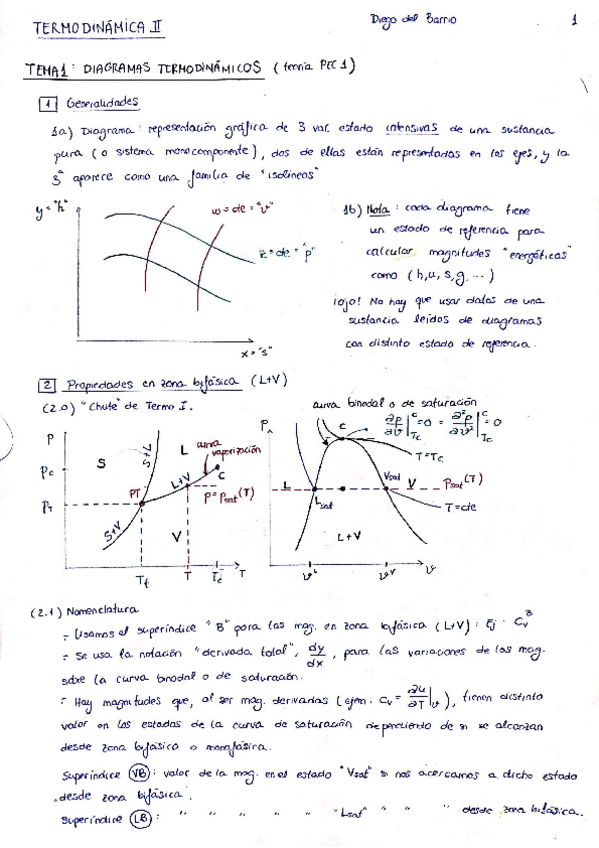 TERMODINÁMICA II
Diego del Barrio
1
TEMA 1: DIAGRAMAS TERMODINÁMICOS (teoría PEC 1)
1 Generalidades
1a) Diagrama: representación gráfica de 3 var. estado intensivas de una sustancia
pura (o sistema monocomponente), dos de ellas están representadas en los ejes, y la
3ª aparece como una familia de "isolíneas"
y = "h"
w = cte = "v"
z = cte = "p"
x = "s"
1b) Nota: cada diagrama tiene
un estado de referencia para
calcular magnitudes "energéticas"
como (h, u, s, g, ...)
¡ojo! No hay que usar datos de una
sustancia leídos de diagramas
con distinto estado de referencia.
2 Propiedades en zona bifásica (L+V)
(2.0) "Chute" de Termo I.
curva binodal o de saturación
P
Pc
PT
S
S+L
L
curva
vaporización
L+V
C
PT
P = Psat(T)
S+V
V
Tf
T
Tc
T
P
C
∂p/∂v|Tc^C = 0 = ∂²p/∂v²|Tc^C = 0
T=Tc
L
Lsat
Vsat
V
Psat(T)
T=cte
L+V
v^L
v^V
v
(2.1) Nomenclatura
- Usamos el superíndice "B" para las mag. en zona bifásica (L+V): Ej: Cv^B
- Se usa la notación "derivada total", dy/dx, para las variaciones de las mag.
sobre la curva binodal o de saturación.
- Hay magnitudes que, al ser mag. derivadas (ejem: Cv = ∂u/∂T|v), tienen distinto
valor en los estados de la curva de saturación dependiendo de si se alcanzan
desde zona bifásica o monofásica.
Superíndice VB: valor de la mag. en el estado "Vsat" si nos acercamos a dicho estado
desde zona bifásica.
Superíndice LB: " " " " " "Lsat" " " " desde zona bifásica.